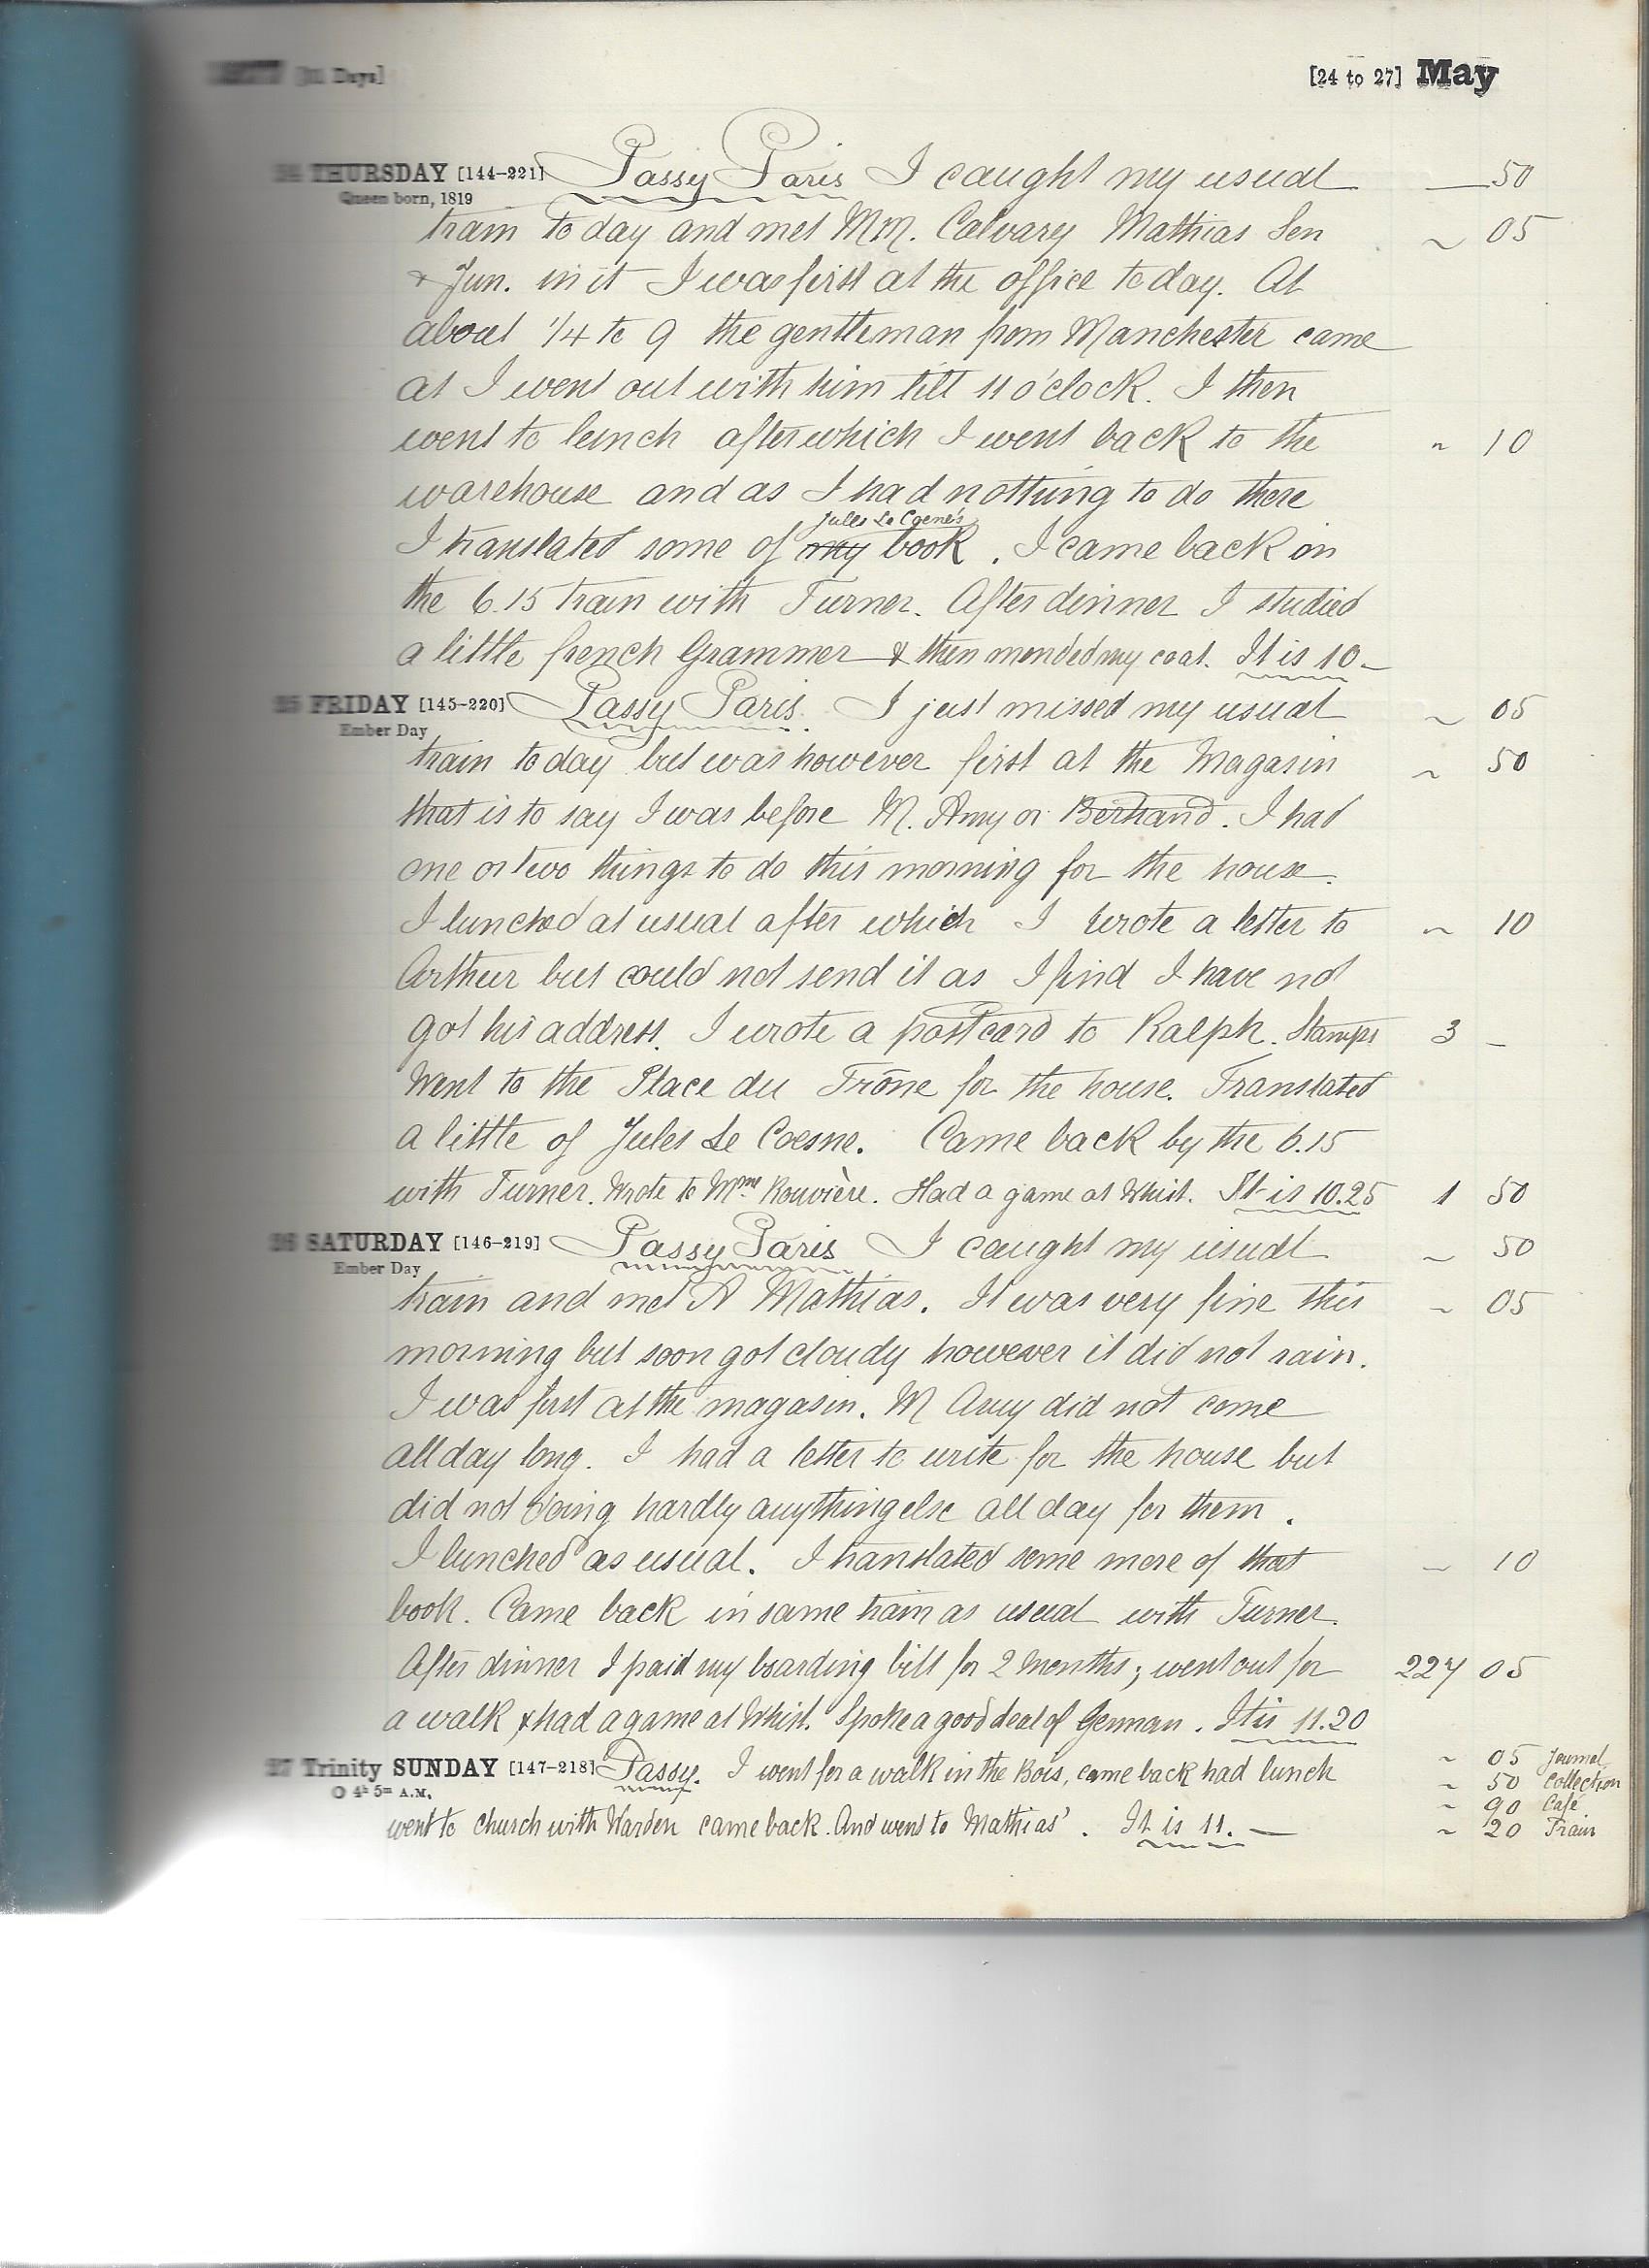 [31 Days] [24 to 27] May
THURSDAY [144-221] Passy Paris I caught my usual — 50
Queen born, 1819
train to day and met MM. Calvary Mathias Sen ~ 05
& Jun. in it I was first at the office today. At
about 1/4 to 9 the gentleman from Manchester came
at I went out with him till 11 o'clock. I then
went to lunch after which I went back to the ~ 10
warehouse and as I had nothing to do there
Jules Le Coene's
I translated some of my book. I came back on
the 6.15 train with Turner. After dinner I studied
a little french Grammer & then mended my coat. It is 10 —
25 FRIDAY [145-220] Passy Paris. I just missed my usual ~ 05
Ember Day
train to day but was however first at the Magasin ~ 50
that is to say I was before M. Amy or Bertrand. I had
one or two things to do this morning for the house.
I lunched at usual after which I wrote a letter to ~ 10
Arthur but could not send it as I find I have not
got his address. I wrote a postcard to Ralph. Stamps 3 –
Went to the Place du Trône for the house. Translated
a little of Jules Le Coesne. Came back by the 6.15
with Turner. Wrote to Mme Rouvière. Had a game at Whist. It is 10.25 1 50
26 SATURDAY [146-219] Passy Paris I caught my usual ~ 50
Ember Day
train and met A Mathias. It was very fine this ~ 05
morning but soon got cloudy however it did not rain.
I was first at the magasin. M Amy did not come
all day long. I had a letter to write for the house but
did not doing hardly anything else all day for them.
I lunched as usual. I translated some more of that — 10
book. Came back in same train as usual with Turner.
After dinner I paid my boarding bill for 2 months; went out for 227 05
a walk & had a game at Whist. Spoke a good deal of German. It is 11.20
27 Trinity SUNDAY [147-218] Passy. I went for a walk in the Bois, came back had lunch ~ 05 Journal
O 4h 5m A.M. ~ 50 Collection
~ 90 Café
went to church with Warden came back. And went to Mathias'. It is 11. — ~ 20 Train